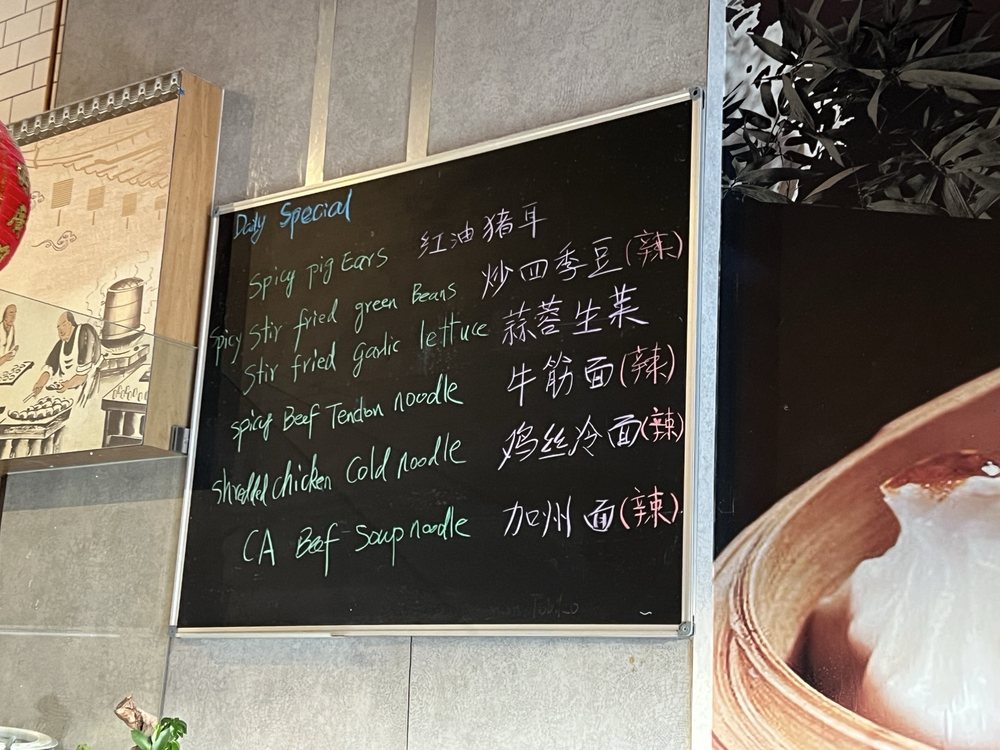 Daily Special
Spicy pig Ears 红油猪耳
Spicy Stir fried green Beans 炒四季豆(辣)
Stir fried garlic lettuce 蒜蓉生菜
spicy Beef Tendon noodle 牛筋面(辣)
shredded chicken Cold noodle 鸡丝冷面(辣)
CA Beef Soup noodle 加州面(辣)